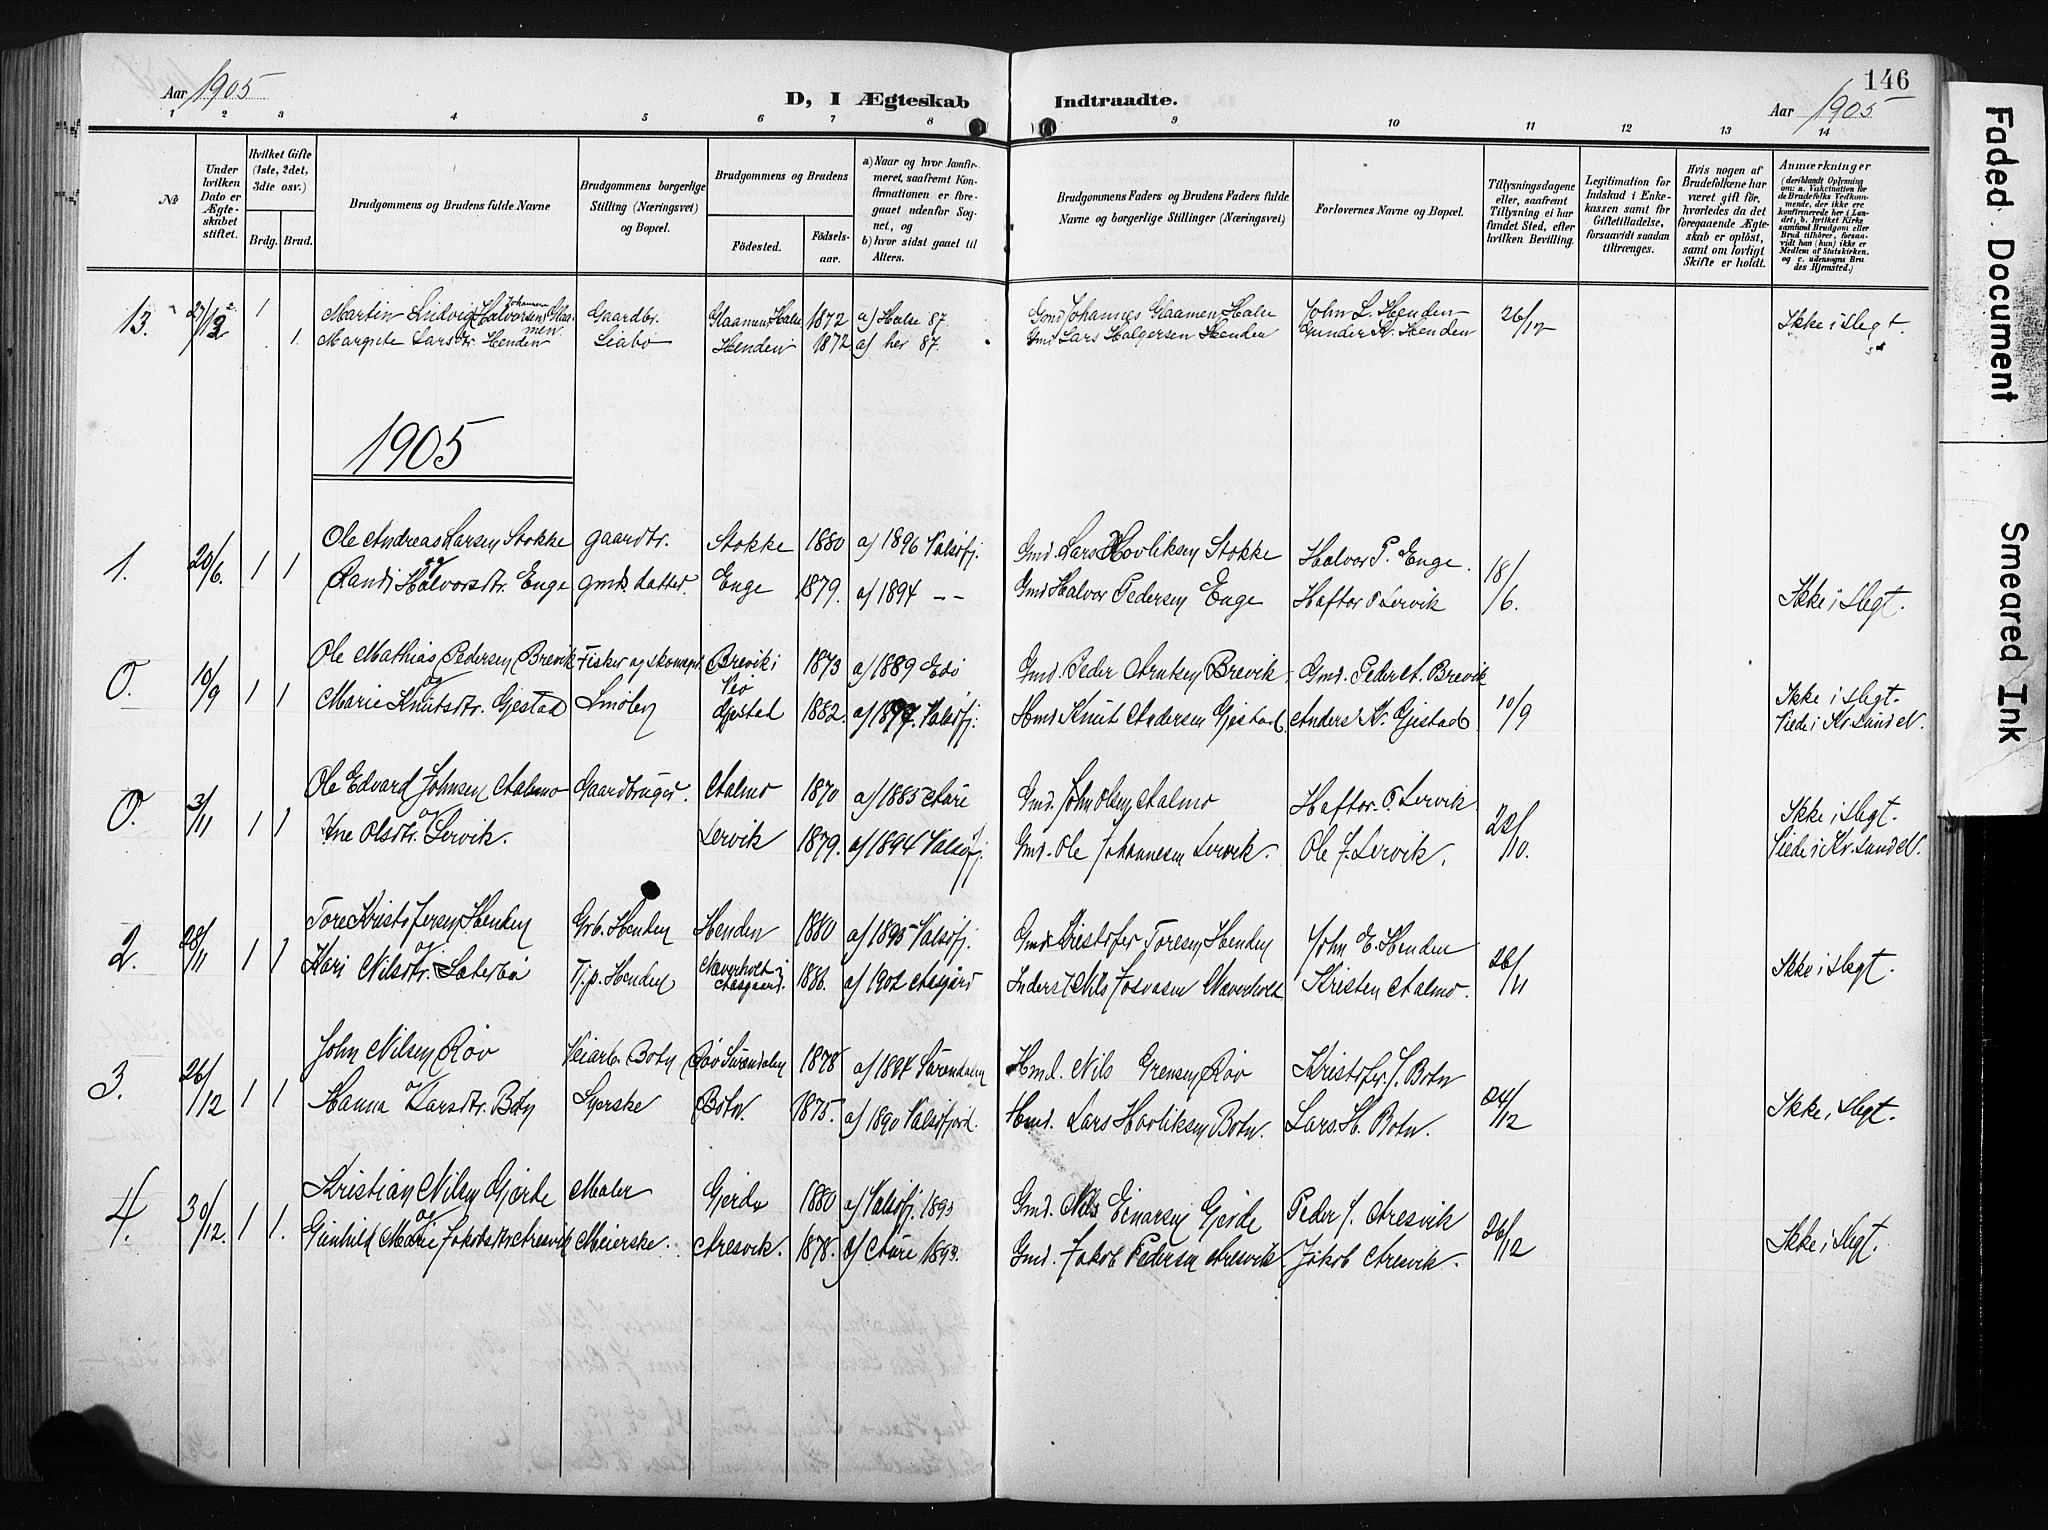 146
Aar 1905
D, I Ægteskab
Indtraadte.
Aar 1905
1 2 3 4 5 6 7 8 9 10 11 12 13 14
No
Under hvilken Dato er Ægteskabet stiftet.
Hvilket Gifte (1ste, 2det, 3dte osv.)
Brdg. Brud.
Brudgommens og Brudens fulde Navne
Brudgommens borgerlige Stilling (Næringsvei) og Bopæl.
Brudgommens og Brudens
Fødested.
Fødselsaar.
a) Naar og hvor konfirmeret, saafremt Konfirmationen er foregaaet udenfor Sognet, og
b) hvor sidst gaaet til Alters.
Brudgommens Faders og Brudens Faders fulde Navne og borgerlige Stillinger (Næringsvei)
Forlovernes Navne og Bopæl.
Tillysningsdagene eller, saafremt Tillysning ei har fundet Sted, efter hvilken Bevilling.
Legitimation for Indskud i Enkekassen samt for Giftetilladelse, forsaavidt saadan tiltrænges.
Hvis nogen af Brudefolkene har været gift før, hvorledes da det foregaaende Ægteskab er opløst, samt om lovligt Skifte er holdt.
Anmærkninger
(deriblandt Oplysning om: a. Vakcination for de Brudefolks Vedkommende, der ikke ere konfirmerede her i Landet; b. hvilket Kirkesamfund Brudgom eller Brud tilhører, forsaavidt han (hun) ikke er Medlem af Statskirken, og c. udensogns Brudes Hjemsted.)
13. 27/12 1 Martin Ludvig Halvorsen Johannesen Glaamen Gaardbr. Glaamen, Halse 1872 a) Halse 87 Gmd Johannes Glaamen Halse John L. Henden 26/12 Ikke i slegt.
1. Margrete Larsdtr. Henden Liabø Henden 1872 a) her 87. Gmd Lars Halgersen Henden Gunder K. Henden
1905
1. 20/6. 1 1 Ole Andreas Larsen Stokke gaardbr. Stokke 1880 a) 1896 Valsøfj. Gmd. Lars Hovliksen Stokke Halvor P. Enge. 18/6.
og
Randi Halvorsdtr. Enge gmds datter. Enge 1879. a) 1894 -- Gmd Halvor Pedersen Enge Haftor P. Lervik Ikke i slegt.
0. 10/9 1 1 Ole Mathias Pedersen Brevik Fisker og skomager Brevik i 1873 a) 1889 Edø Gmd. Peder Arntsen Brevik Gmd. Peder A. Brevik 10/9 Ikke i slegt.
og
Marie Knutsdtr. Gjestad Smølen Gjestad 1882. a) 1897. Valsøfj. Hmd Knut Andersen Gjestad. Anders K. Gjestad Viede i Kr.sund N.
0. 3/11 1 1 Ole Edvard Johnsen Aalmo Gaardbruger. Aalmo 1870 a) 1885 Aure Gmd. John Olsen Aalmo Haftor P. Lervik 22/10. Ikke i slegt.
og
Ane Olsdtr. Lervik. Lervik 1879. a) 1894 Valsøfj. Gmd. Ole Johannesen Lervik. Ole J. Lervik. Viede i Kr.sund N.
2. 28/11 1 1 Tore Kristofersen Henden Grb. Henden Henden 1880 a) 1895 Valsøfj. Gmd Kristofer Toresen Henden John E. Henden 26/11 Ikke i slegt.
og
Kari Nilsdtr. Sæterbø Tj.p. Henden Naverholt i Aasgaard. 1886. a) 1902 Aasgård Inderst Nils Josvasen Naverholt Kristen Aalmo.
3. 26/12 1 1 John Nilsen Røv Veiarb. Botn Røv Surendalen 1878 a) 1894 Surendalen Hmd. Nils Grensen Røv Kristofer J. Botn 24/12 Ikke i slegt.
og
Hanna Larsdtr. Botn Syerske Botn. 1875. a) 1890 Valsøfjord. Hmd. Lars Havliksen Botn. Lars H. Botn.
4. 30/12. 1 1. Kristian Nilsen Gjerde Maler Gjerde 1880 a) Valsøfj. 1895 Gmd. Nils Einarsen Gjerde Peder J. Aresvik 26/12 Ikke i slegt.
og
Gunhild Marie Jakobsdtr. Aresvik Meierske. Aresvik. 1878. a) Aure 1893. Gmd. Jakob Pedersen Aresvik Jakob Aresvik.
Faded Document
Smeared Ink